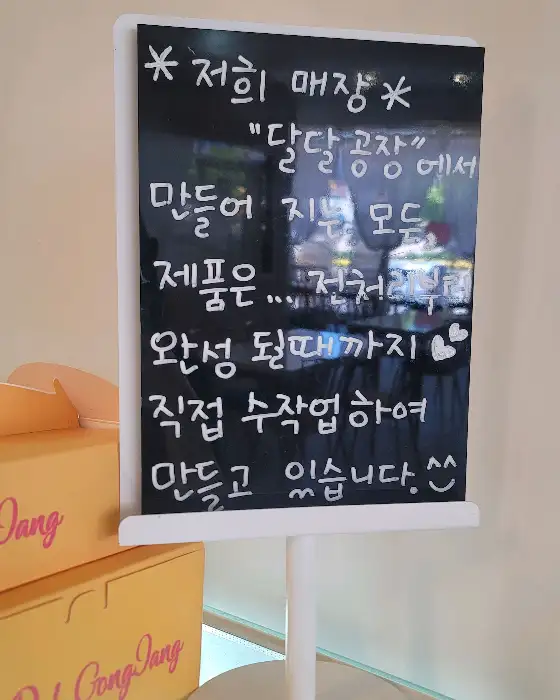 * 저희 매장 *
"달달공장"에서
만들어 지는 모든
제품은... 전처리부터
완성 될때까지
직접 수작업하여
만들고 있습니다. ^^
Jang
GongJang